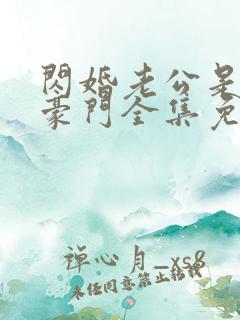 閃婚老公是
豪門全集免
禅心月_xs8
未任同意禁止転載